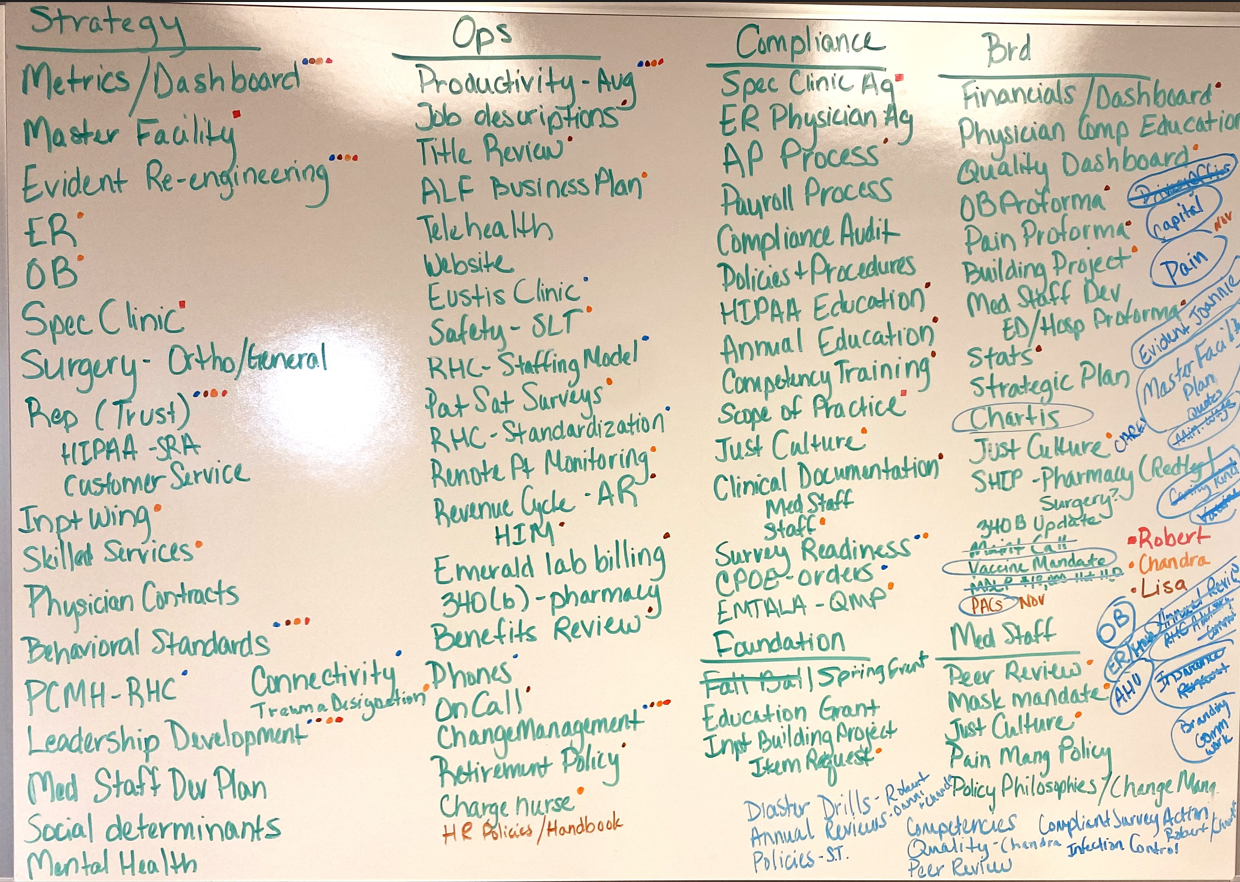 Strategy
Metrics/Dashboard
Master Facility
Evident Re-engineering
ER
OB
Spec Clinic
Surgery - Ortho/General
Rep (Trust)
HIPAA - SRA
Customer Service
Inpt Wing
Skilled Services
Physician Contracts
Behavioral Standards
PCMH - RHC
Connectivity
Trauma Designation
Leadership Development
Med Staff Dev Plan
Social determinants
Mental Health
Ops
Productivity - Aug
Job descriptions
Title Review
ALF Business Plan
Telehealth
Website
Eustis Clinic
Safety - SLT
RHC - Staffing Model
Pat Sat Surveys
RHC - Standardization
Remote Pt Monitoring
Revenue Cycle - AR
HIM
Emerald lab billing
340(b) - pharmacy
Benefits Review
Phones
On Call
Change Management
Retirement Policy
Charge nurse
HR Policies/Handbook
Compliance
Spec Clinic Ag
ER Physician Ag
AP Process
Payroll Process
Compliance Audit
Policies + Procedures
HIPAA Education
Annual Education
Competency Training
Scope of Practice
Just Culture
Clinical Documentation
Med Staff
Staff
Survey Readiness
CPOE - orders
EMTALA - QMP
Foundation
Fall Ball Spring Grant
Education Grant
Inpt Building Project
Item Request
Diaster Drills - Robert
Annual Reviews
Policies - S.T.
Brd
Financials/Dashboard
Physician Comp Education
Quality Dashboard
OB Proforma
Pain Proforma
Building Project
Med Staff Dev
ED/Hosp Proforma
Stats
Strategic Plan
Chartis
Just Culture
SHIP - Pharmacy (Redley)
Surgery?
340B Update
Maint Call
Vaccine Mandate
PACs Nov
Capital
Pain
Nov
Evident Joannie
Master Facil
Plan
Quotes
CARE
Robert
Chandra
Lisa
OB
ER/Hosp
AHO
Insurance
Request
Branding
Comm
Work
Med Staff
Peer Review
Mask mandate
Just Culture
Pain Mang Policy
Policy Philosophies/Change Mang.
Competencies
Quality - Chandra
Peer Review
Compliant Survey Action
Infection Control
Robert/